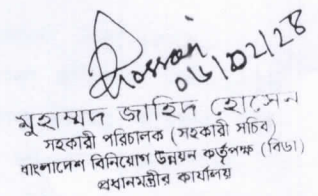 Hossain
০৬/০২/২৪
মুহাম্মদ জাহিদ হোসেন
সহকারী পরিচালক (সহকারী সচিব)
বাংলাদেশ বিনিয়োগ উন্নয়ন কর্তৃপক্ষ (বিডা)
প্রধানমন্ত্রীর কার্যালয়